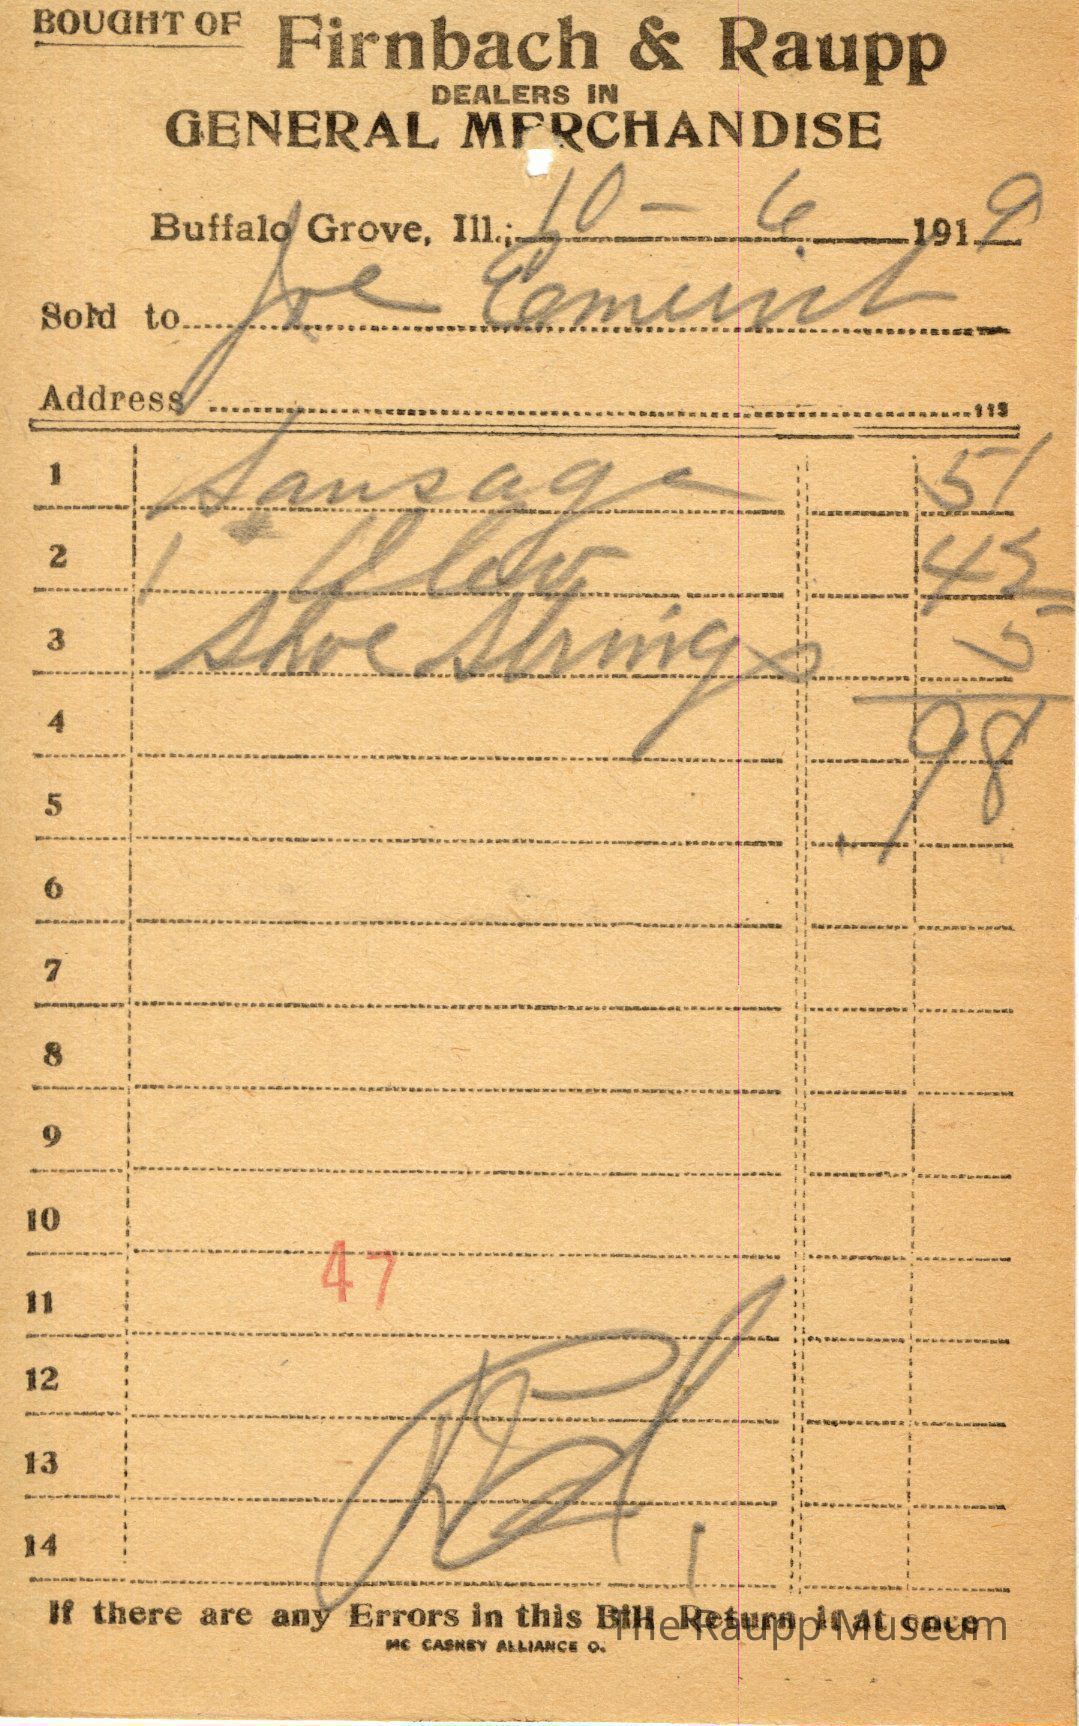 BOUGHT OF Firnbach & Raupp
DEALERS IN
GENERAL MERCHANDISE
Buffalo Grove, Ill.; 10 - 6 1919
Sold to Joe
Address 113
1 Sausage 51
2 1 45
3 Shoe Strings 5
4 98
5
6
7
8
9
10
47
11
12
13
14
If there are any Errors in this Bill Return it at once
The Raupp Museum
MC CASKEY ALLIANCE O.